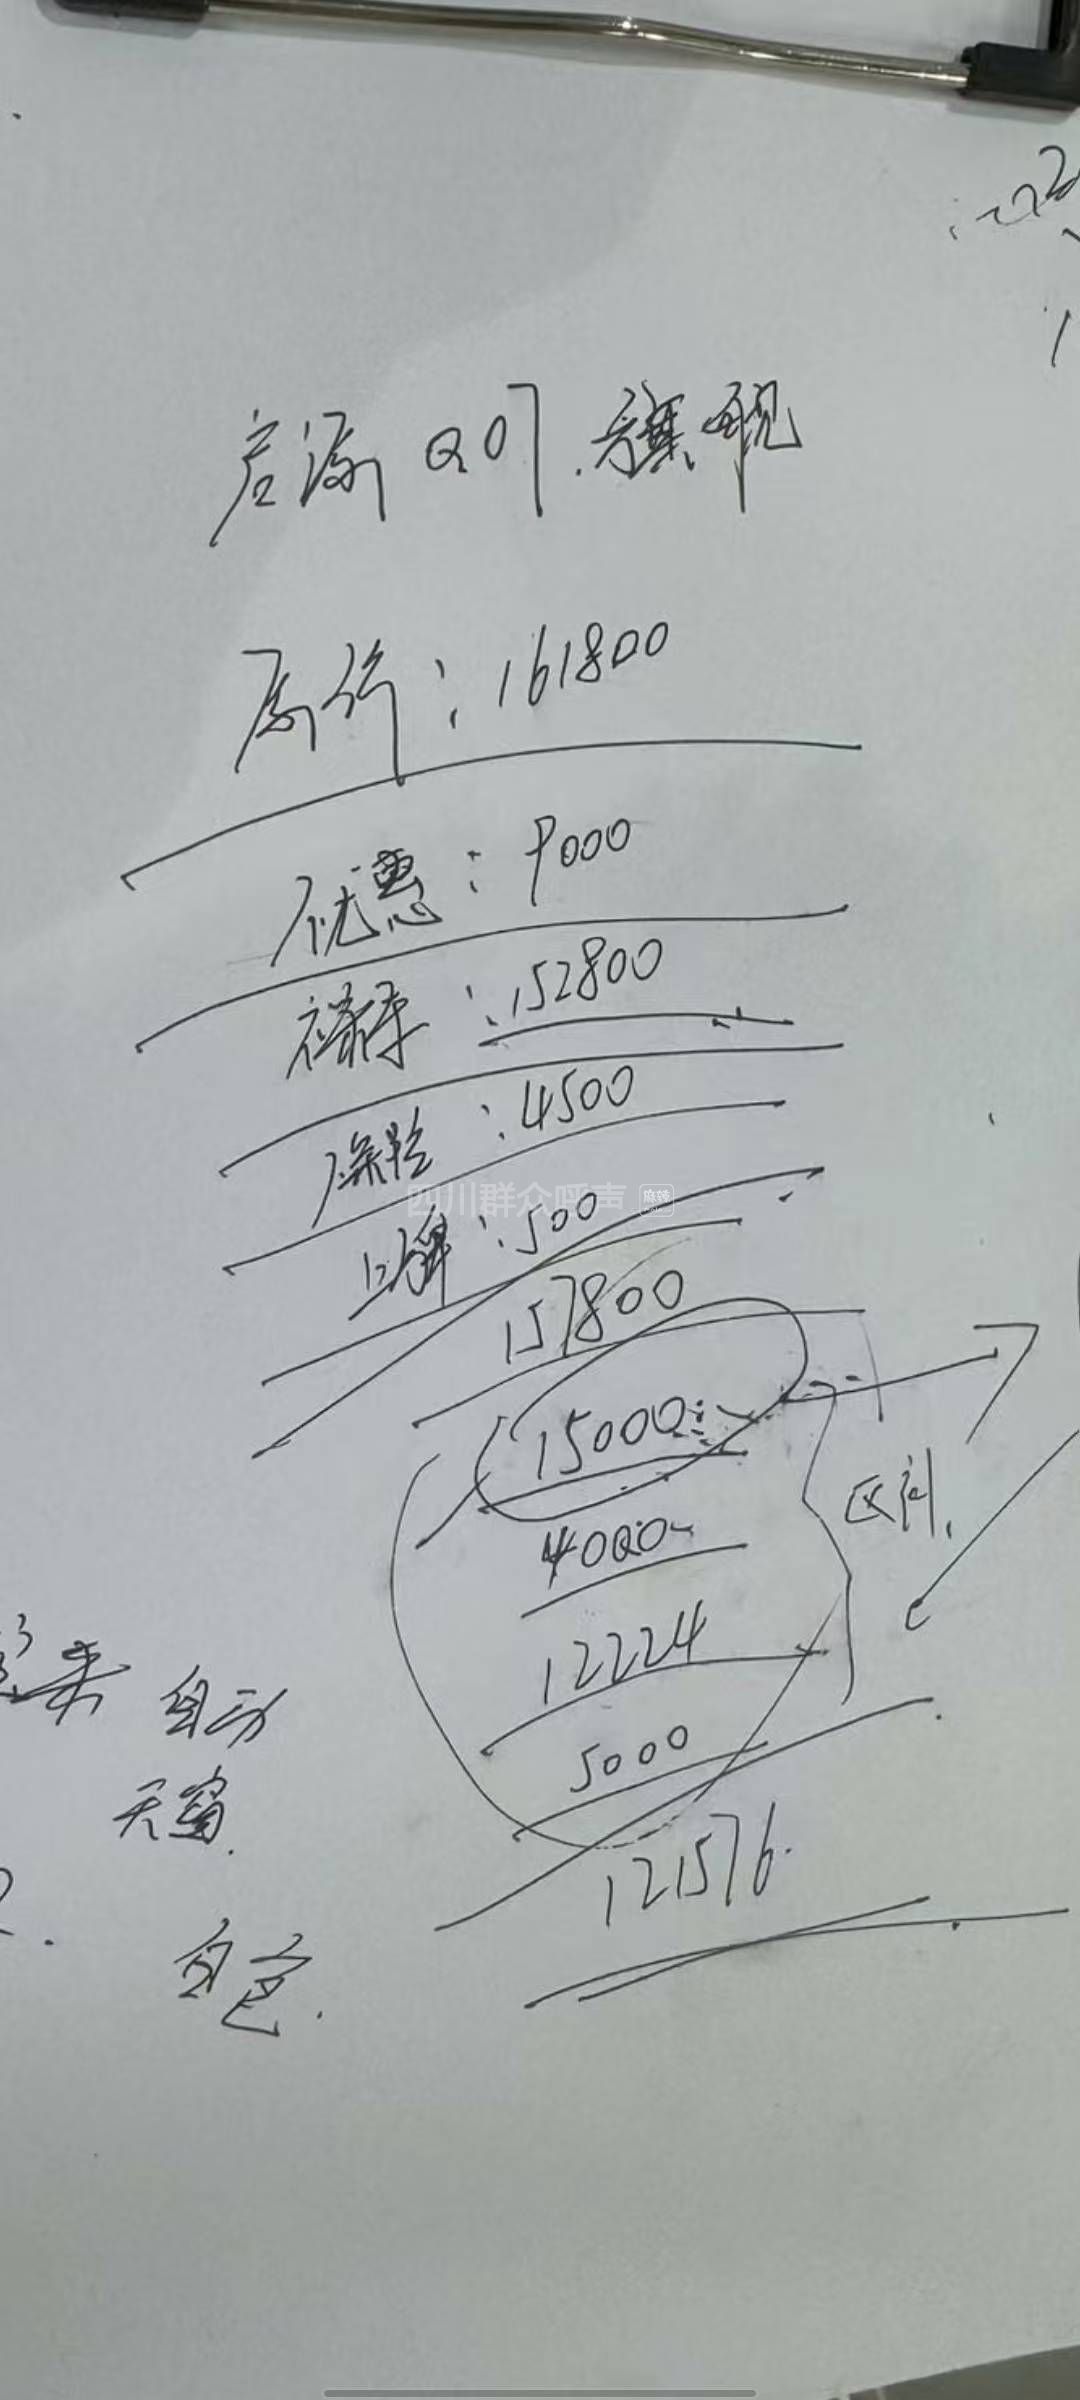 启源 Q07.旗舰
原价：161800
优惠：9000
裸车：152800
保险：4500
上牌：500
四川群众呼声
157800
15000
区间.
4000
12224
自动
5000
天窗.
121576.
白色.